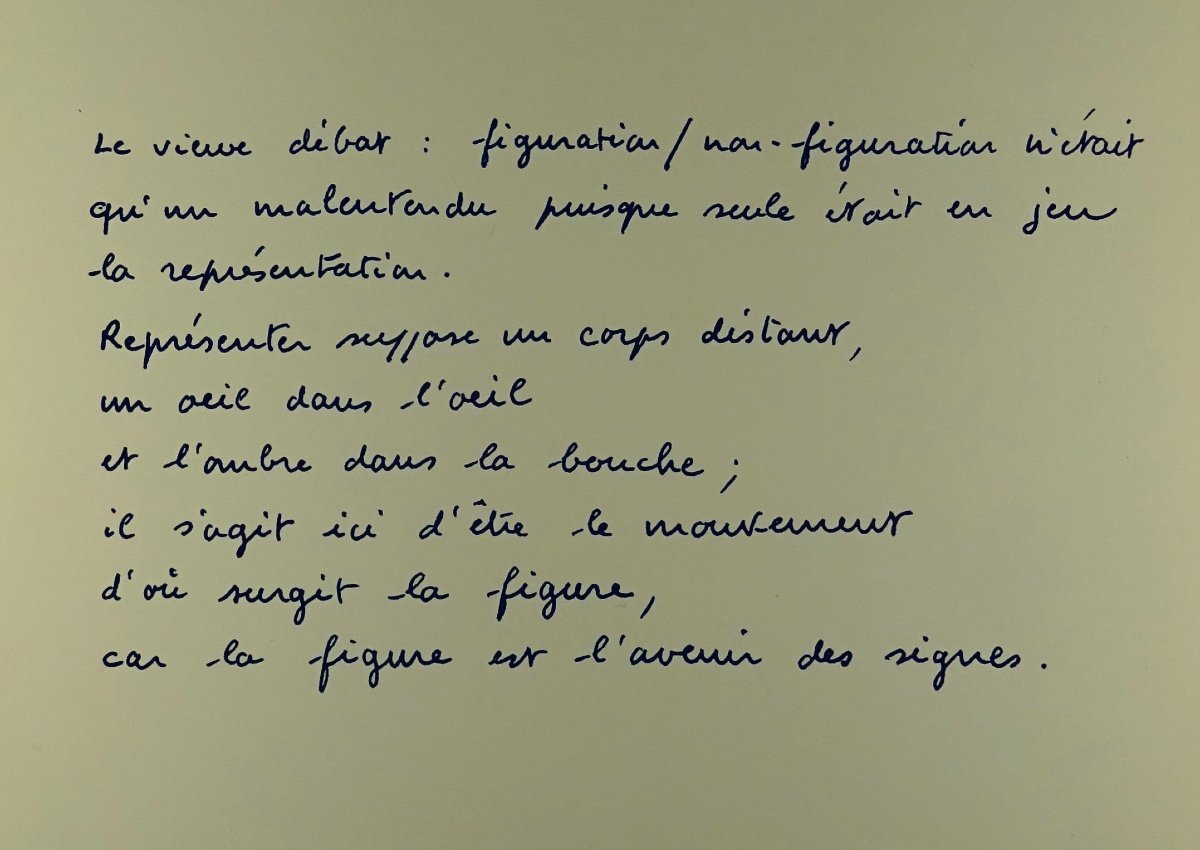 Le vieux débat : figuration/non-figuration n'était
qu'un malentendu puisque seule était en jeu
la représentation.
Représenter suppose un corps distant,
un oeil dans l'oeil
et l'ombre dans la bouche ;
il s'agit ici d'être le mouvement
d'où surgit la figure,
car la figure est l'avenir des signes.